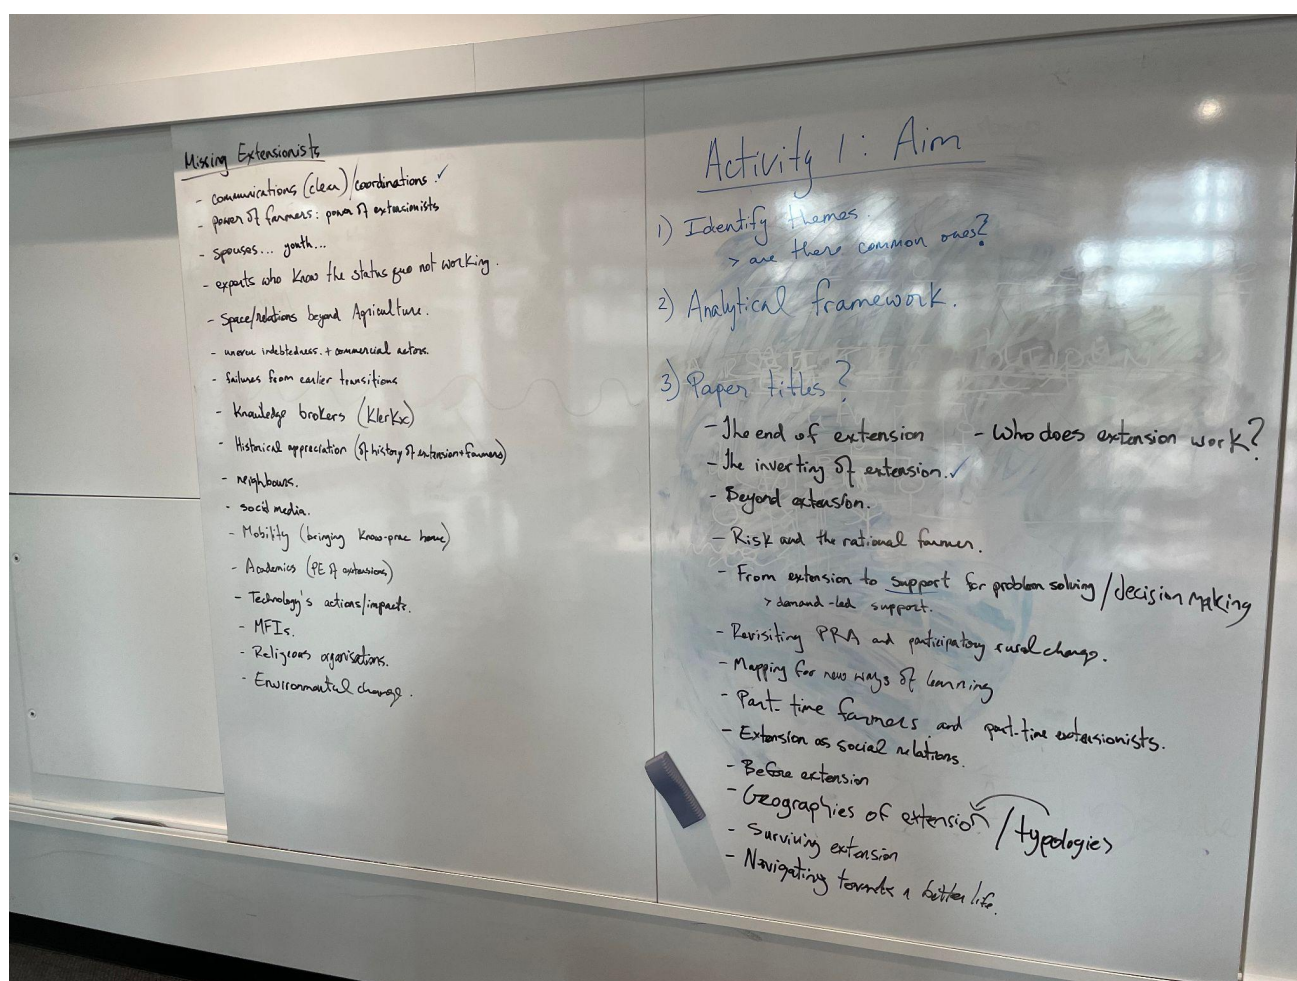 Missing Extensionists
- communications (clear)/coordinations. ✓
- power of farmers: power of extensionists
- spouses... youth...
- experts who know the status quo not working.
- Space/relations beyond Agriculture.
- uneven indebtedness. + commercial actors.
- failures from earlier transitions
- Knowledge brokers (Klerkx)
- Historical appreciation (of history of extension + farmers)
- neighbours.
- social media.
- Mobility (bringing know-prac home)
- Academics (PE of extensions)
- Technology's actions/impacts.
- MFIs.
- Religious organisations.
- Environmental change.
Activity 1: Aim
1) Identify themes.
> are there common ones?
2) Analytical framework.
3) Paper titles?
- The end of extension - Who does extension work?
- The inverting of extension. ✓
- Beyond extension.
- Risk and the rational farmer.
- From extension to support for problem solving/decision making
> demand-led support.
- Revisiting PRA and participatory rural change.
- Mapping for new ways of learning
- Part-time farmers and part-time extensionists.
- Extension as social relations.
- Before extension
- Geographies of extension/typologies
- Surviving extension
- Navigating towards a better life.